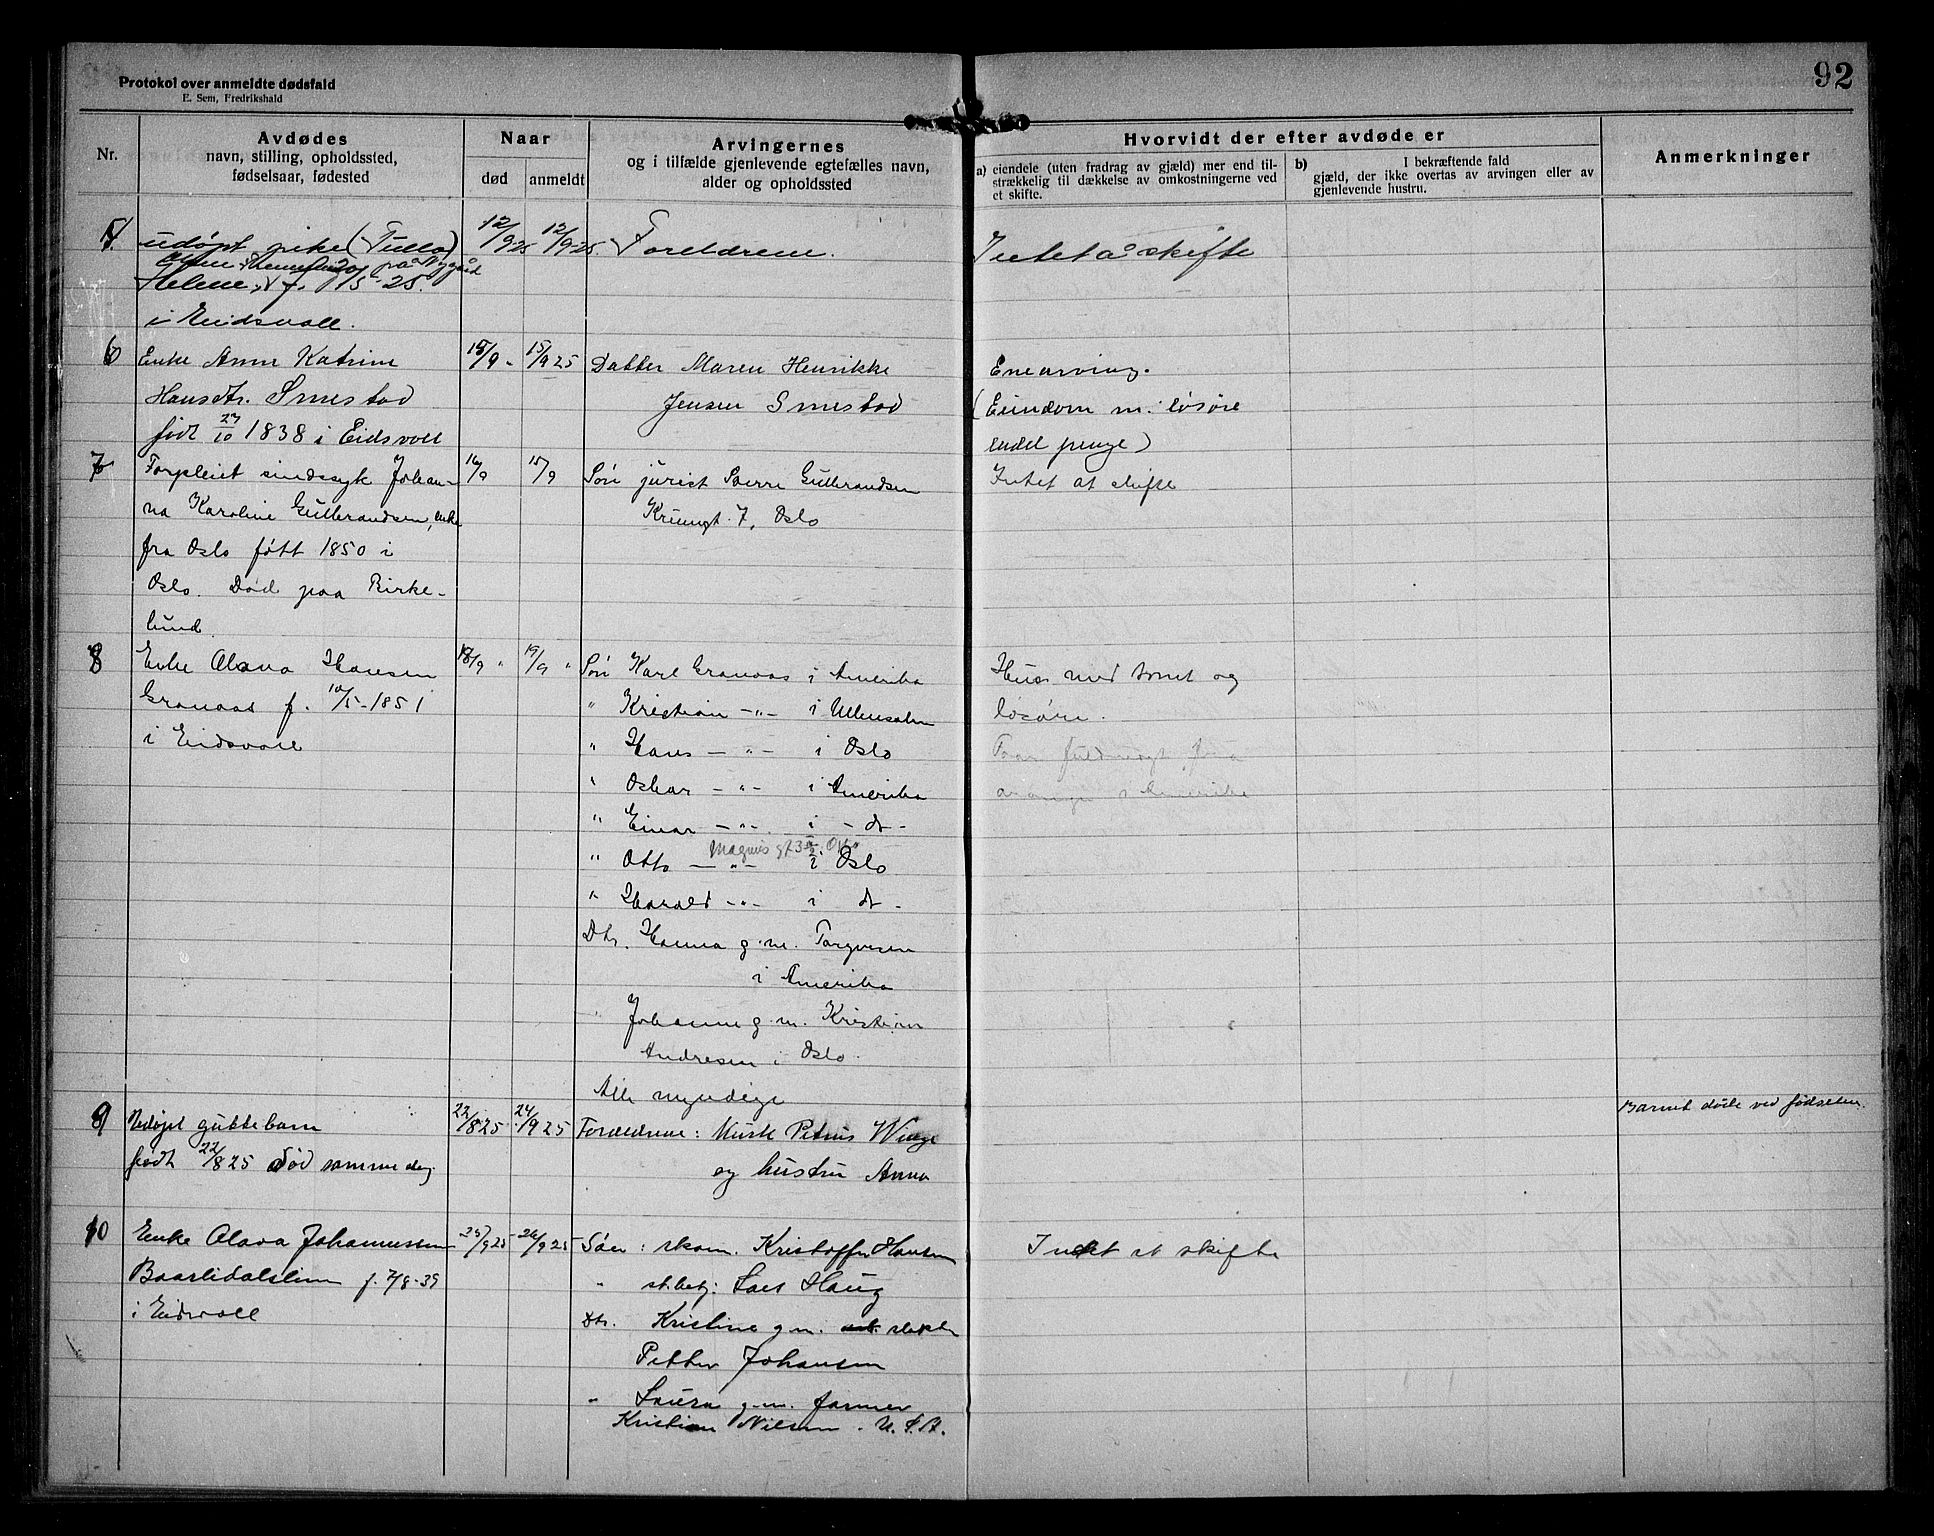 92
Protokol over anmeldte dødsfald
E. Sem, Fredrikshald
Nr.
Avdødes
navn, stilling, opholdssted,
fødselsaar, fødested
Naar
død
anmeldt
Arvingernes
og i tilfælde gjenlevende egtefælles navn,
alder og opholdssted
Hvorvidt der efter avdøde er
a) eiendele (uten fradrag av gjæld) mer end til-
strækkelig til dækkelse av omkostningerne ved
et skifte.
b) I bekræftende fald
gjæld, der ikke overtas av arvingen eller av
gjenlevende hustru.
Anmerkninger
5 udøpt pike (Tulla) 12/9 25 12/9 25 Foreldrene. Intet å skifte
på Nygård
Helene, f. /5-25.
i Eidsvoll.
6 Enke Anne Katrine 15/9 - 15/9 25 Datter Maren Henrikke Enearving.
Hansdtr. Smestad Jensen Smestad (Eiendom m. løsøre
født 27/10 1838 i Eidsvoll endel penge)
7 Forpleiet sindssyk Johan- 16/9 15/9 Søn jurist Sverre Gulbrandsen Intet at skifte
na Karoline Gulbrandsen, enke 7, Oslo
fra Oslo født 1850 i
Oslo. Død paa Birke-
lund.
8 Enke Olava Hansen 18/9 " 19/9 " Søn Karl Granaas i Amerika Hus med tomt og
Granaas f. 10/5-1851 " Kristian -"- i Ullensaker løsøre.
i Eidsvoll " Hans -"- i Oslo fuldmagt fra
" Oskar -"- i Amerika arvinger i Amerika
" Einar -"- i - dt -
Magnus gt 3
" Otto -"- i Oslo
" Harald -"- i dt -
Dtr. Hanna g.m. Torgersen
i Amerika
" Johanne g.m. Kristian
Andresen i Oslo.
Alle myndige
9 Udøpt guttebarn 22/8 25 24/9 25 Forældrene: Musk Petrus Winge Barnet døde ved fødselen.
født 22/8 25 død samme dag og hustru Anna
10 Enke Olava Johannessen 25/9 25 26/9 25 Søn: skom. Kristoffer Hansen Intet at skifte
Baarlidalslien f. 7/8-39 " st.betj: Lars Haug
i Eidsvoll Dtr. Kristine g.m.
Petter Johansen
" Laura g.m. farmer
Kristian Nilsen. U.S.A.